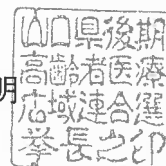 明
山口県後期
高齢者医療
広域連合選
挙長之印